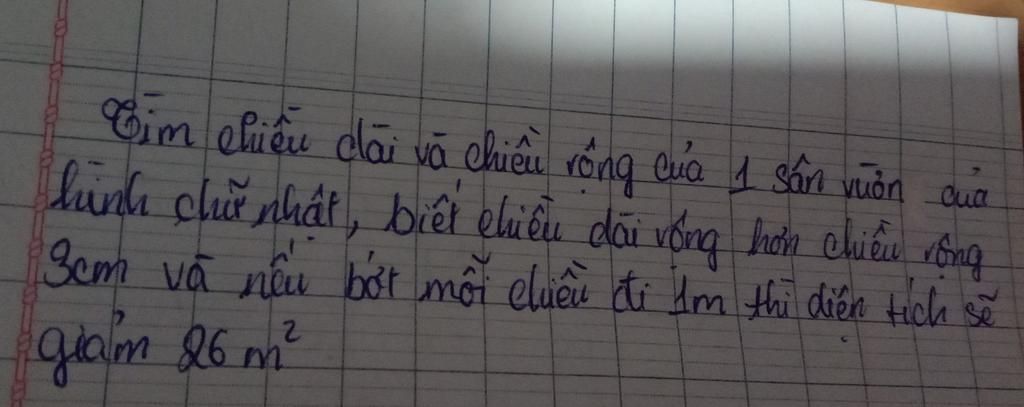 Tìm chiều dài và chiều rộng của 1 sân vườn của
hình chữ nhật, biết chiều dài rộng hơn chiều rộng
3cm và nếu bớt mỗi chiều đi 1m thì diện tích sẽ
giảm 26 m²